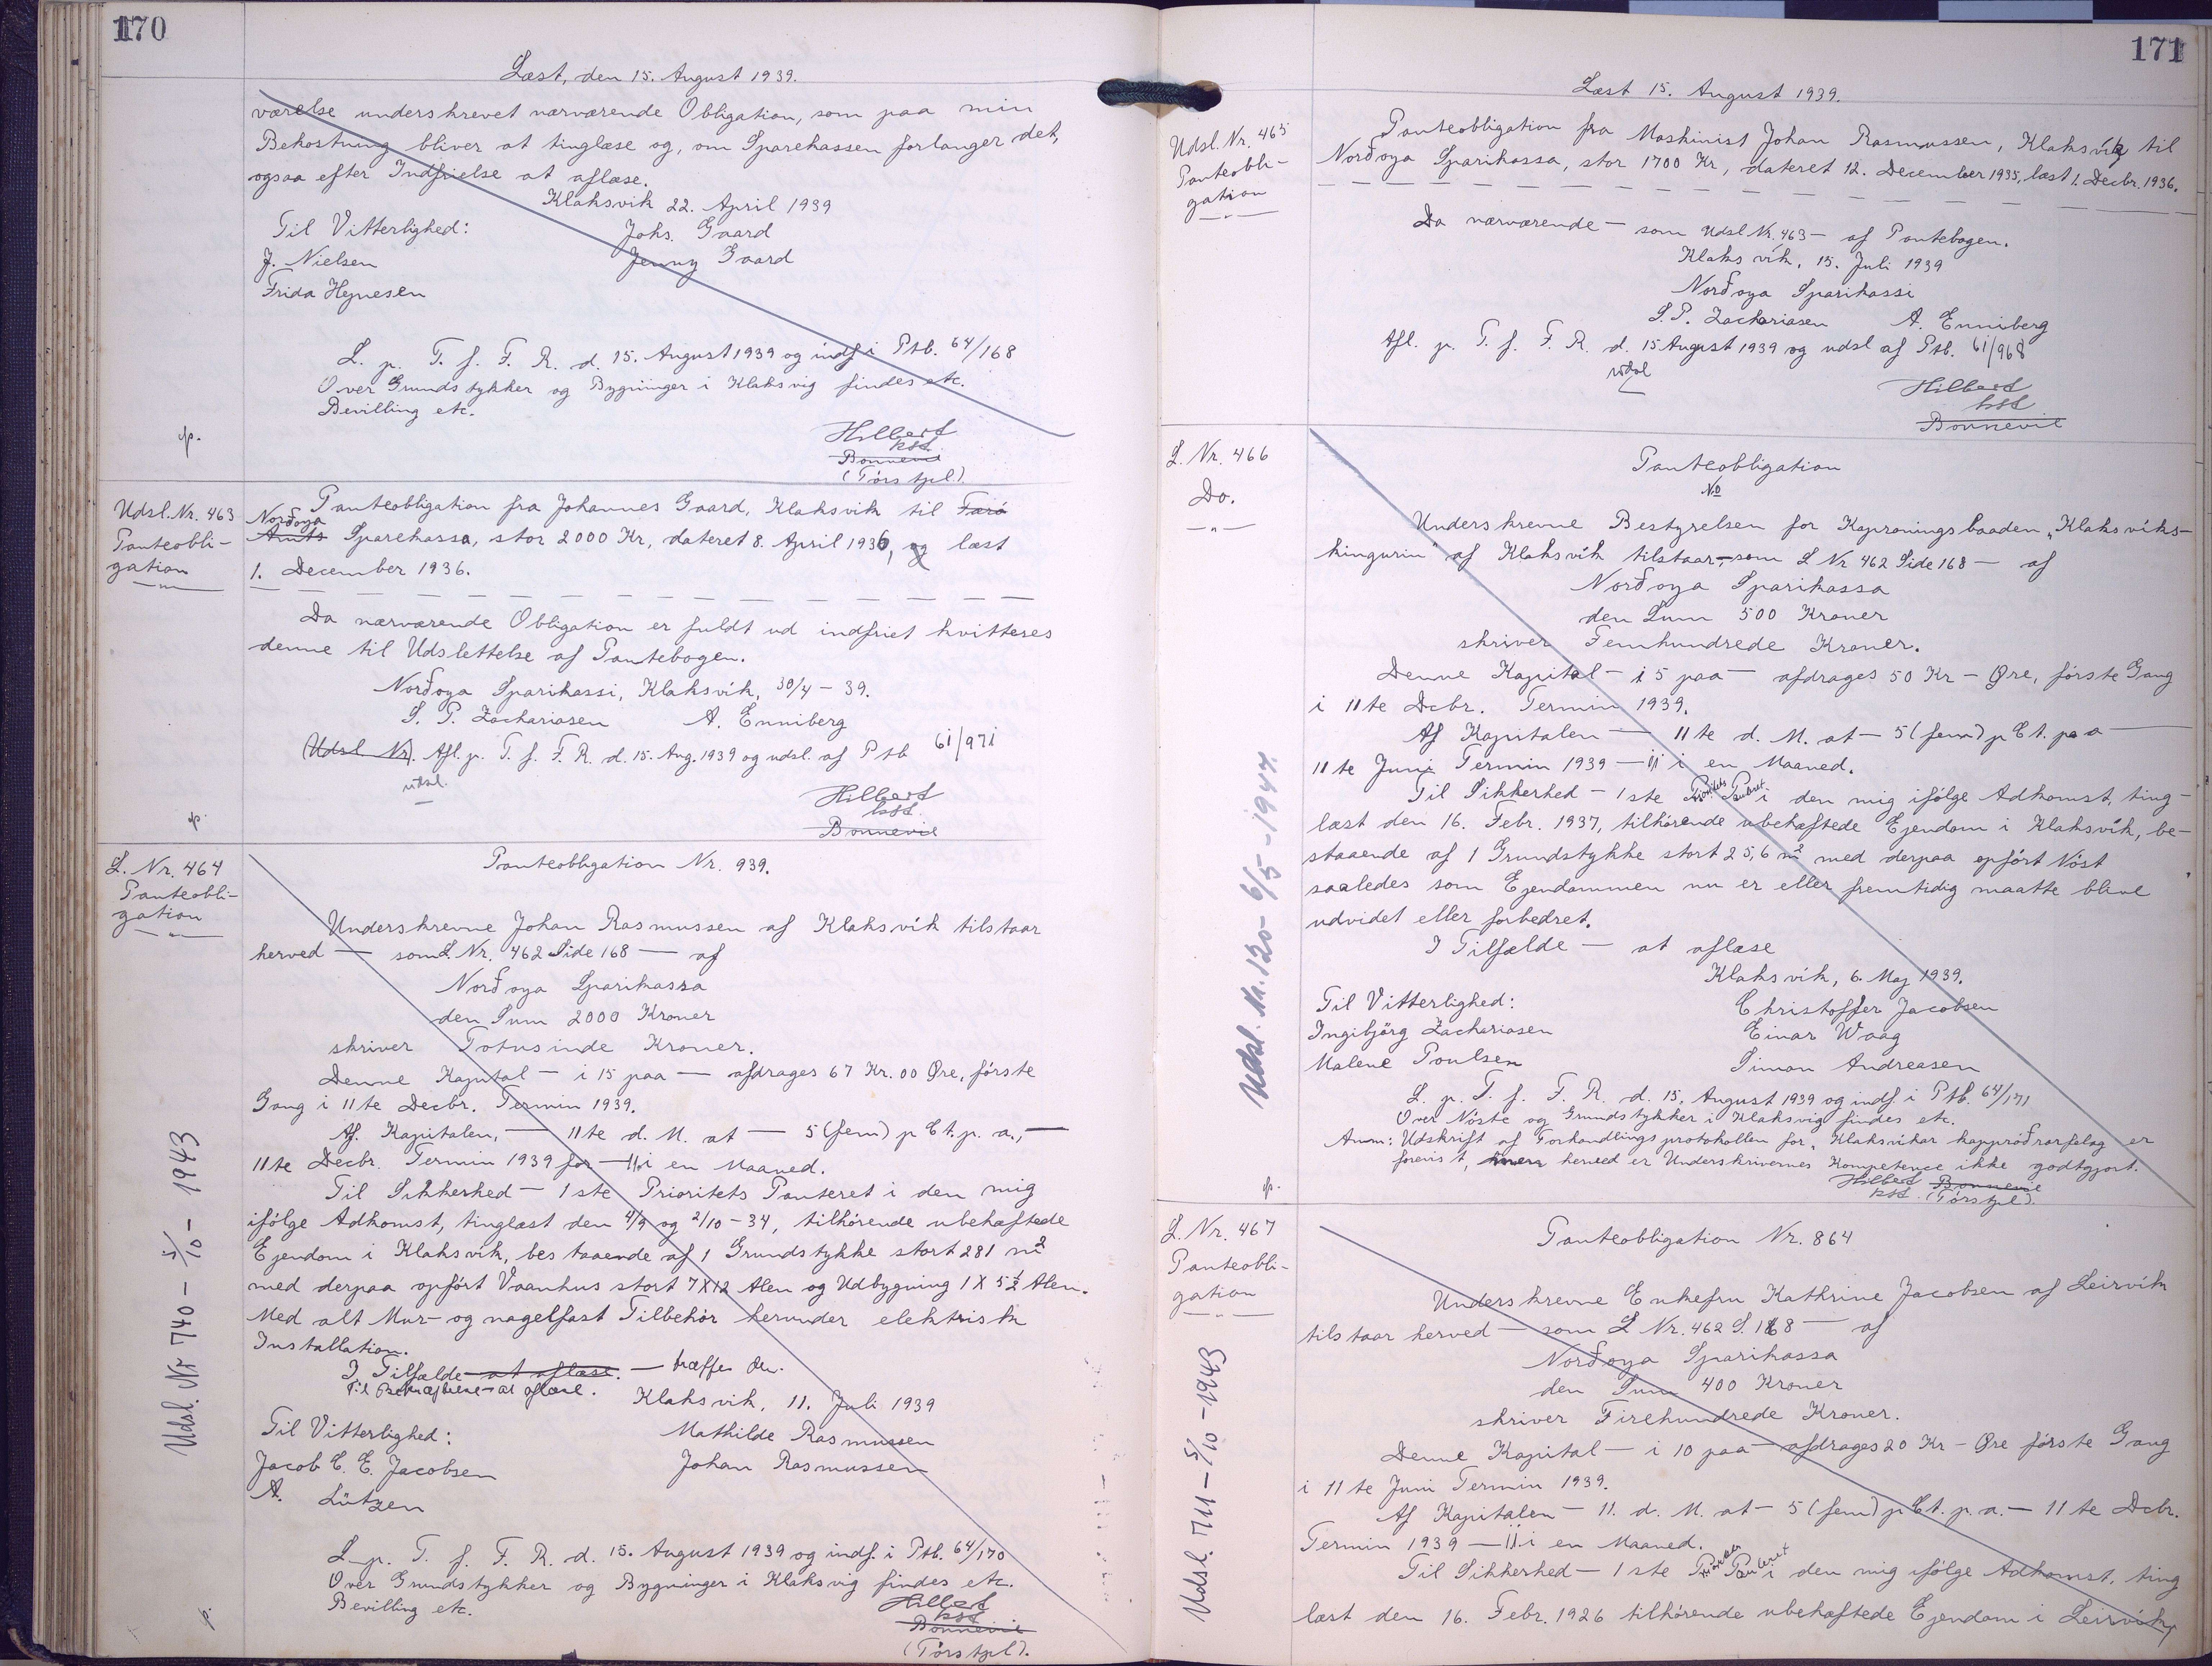 170
Læst, den 15. August 1939.
værelse underskrevet nærværende Obligation, som paa min
Bekostning bliver at tinglæse og, om Sparekassen forlanger det,
ogsaa efter Indfrielse at aflæse.
Klaksvik 22. April 1939
Til Vitterlighed: Johs. Gaard
J. Nielsen Jenny Gaard
Frida Hejnesen
L. p. T. f. F. R. d. 15. August 1939 og indf. i Ptb. 64/168
Over Grundstykker og Bygninger i Klaksvig findes etc.
Bevilling etc.
Hilbert
kst.
Bonnevie
(Tórstpl.)
Udsl. Nr. 463
Panteobli-
gation
Panteobligation fra Johannes Gaard, Klaksvik til Færö
Norðoya
Amts Sparekassa, stor 2000 Kr, dateret 8. April 1936, og læst
1. December 1936.
Da nærværende Obligation er fuldt ud indfriet kvitteres
denne til Udslettelse af Pantebogen.
Norðoya Sparikassi, Klaksvík, 30/4 - 39.
S. P. Zachariasen A. Enniberg
(Udsl Nr). Afl. p. T. f. F. R. d. 15. Aug. 1939 og udsl. af Ptb 61/971
udsl.
Hilbert
kst.
Bonnevie
L. Nr. 464
Panteobli-
gation
Panteobligation Nr. 939.
Underskrevne Johan Rasmussen af Klaksvík tilstaar
herved — som L. Nr. 462 Side 168 — af
Norðoya Sparikassa
den Sum 2000 Kroner
skriver Totusinde Kroner.
Denne Kapital — i 15 paa — afdrages 67 Kr. 00 Øre, første
Gang i 11te Decbr. Termin 1939.
Af Kapitalen, — 11te d. M. at — 5 (fem) p Ct. p. a., —
11te Decbr. Termin 1939 for —"— i en Maaned.
Til Sikkerhed — 1ste Prioritets Panteret i den mig
ifölge Adkomst, tinglæst den 4/9 og 2/10 - 34, tilhörende ubehæftede
Ejendom i Klaksvik, bestaaende af 1 Grundstykke stort 281 m2
med derpaa opfört Vaanhus stort 7X12 Alen og Udbygning 1 X 5½ Alen.
Med alt Mur- og nagelfast Tilbehör herunder elektrisk
Installation.
I Tilfælde at aflæse. — træffer der.
Til Bekræftelse — at aflæse.
Klaksvik, 11. Juli 1939
Til Vitterlighed: Mathilde Rasmussen
Jacob C. E. Jacobsen Johan Rasmussen
A. Lützen
L. p. T. f. F. R. d. 15. August 1939 og indf. i Ptb. 64/170
Over Grundstykker og Bygninger i Klaksvig findes etc.
Bevilling etc.
Hilbert
kst
Bonnevie
(Tórstpl).
Udsl. Nr 740 - 5/10 - 1943
171
Læst 15. August 1939.
Udsl. Nr. 465
Panteobli-
gation
Panteobligation fra Maskinist Johan Rasmussen, Klaksvík til
Norðoya Sparikassa, stor 1700 Kr, dateret 12. December 1935, læst 1. Decbr. 1936.
Da nærværende — som Udsl Nr. 463 — af Pantebogen.
Klaksvík, 15. Juli 1939
Norðoya Sparikassi
S. P. Zachariasen A. Enniberg
Afl. p. T. f. F. R. d. 15 August 1939 og udsl af Ptb. 61/968
udsl
Hilbert
kst
Bonnevie
L. Nr. 466
Do.
Panteobligation
No
Underskrevne Bestyrelsen for Kaproningsbaaden "Klaksvíks-
kingurin" af Klaksvík tilstaar — som L Nr 462 Side 168 — af
Norðoya Sparikassa
den Sum 500 Kroner
skriver Femhundrede Kroner.
Denne Kapital — i 5 paa — afdrages 50 Kr — Øre, første Gang
i 11te Dcbr. Termin 1939.
Af Kapitalen — 11te d. M. at — 5 (fem) p Ct. p a —
11te Juni Termin 1939 —"— i en Maaned.
Til Sikkerhed — 1ste Prioritets Panteret i den mig ifölge Adkomst, ting-
læst den 16. Febr. 1937, tilhörende ubehæftede Ejendom i Klaksvík, be-
staaende af 1 Grundstykke stort 25,6 m2 med derpaa opfört Nóst
saaledes som Ejendommen nu er eller fremtidig maatte blive
udvidet eller forbedret.
I Tilfælde — at aflæse
Klaksvík, 6. Maj 1939.
Til Vitterlighed: Christoffer Jacobsen
Ingibjörg Zachariasen Einar Waag
Malene Poulsen Simon Andreasen
L. p. T. f. F. R. d. 15. August 1939 og indf. i Ptb. 64/171
Over Nóste og Grundstykker i Klaksvig findes etc.
Anm: Udskrift af Forhandlingsprotokollen for "Klaksvikar kappróðrarfelag er
forevist, herved er Underskrivernes Kompetence ikke godtgjort.
Hilbert Bonnevie
kst. (Tórstpl).
Udsl. Nr. 120 - 6/5 - 1944
L. Nr. 467
Panteobli-
gation
Panteobligation Nr. 864
Underskrevne Enkefru Kathrine Jacobsen af Leirvík
tilstaar herved — som L Nr. 462 S. 168 — af
Norðoya Sparikassa
den Sum 400 Kroner
skriver Firehundrede Kroner.
Denne Kapital — i 10 paa — afdrages 20 Kr — Øre første Gang
i 11te Juni Termin 1939.
Af Kapitalen — 11. d. M. at — 5 (fem) p Ct. p. a. — 11te Dcbr.
Termin 1939 —"— i en Maaned.
Til Sikkerhed — 1ste Prioritets Panteret i den mig ifölge Adkomst, ting
læst den 16. Febr. 1926 tilhörende ubehæftede Ejendom i Leirvík,
Udsl. 741 - 5/10 - 1943